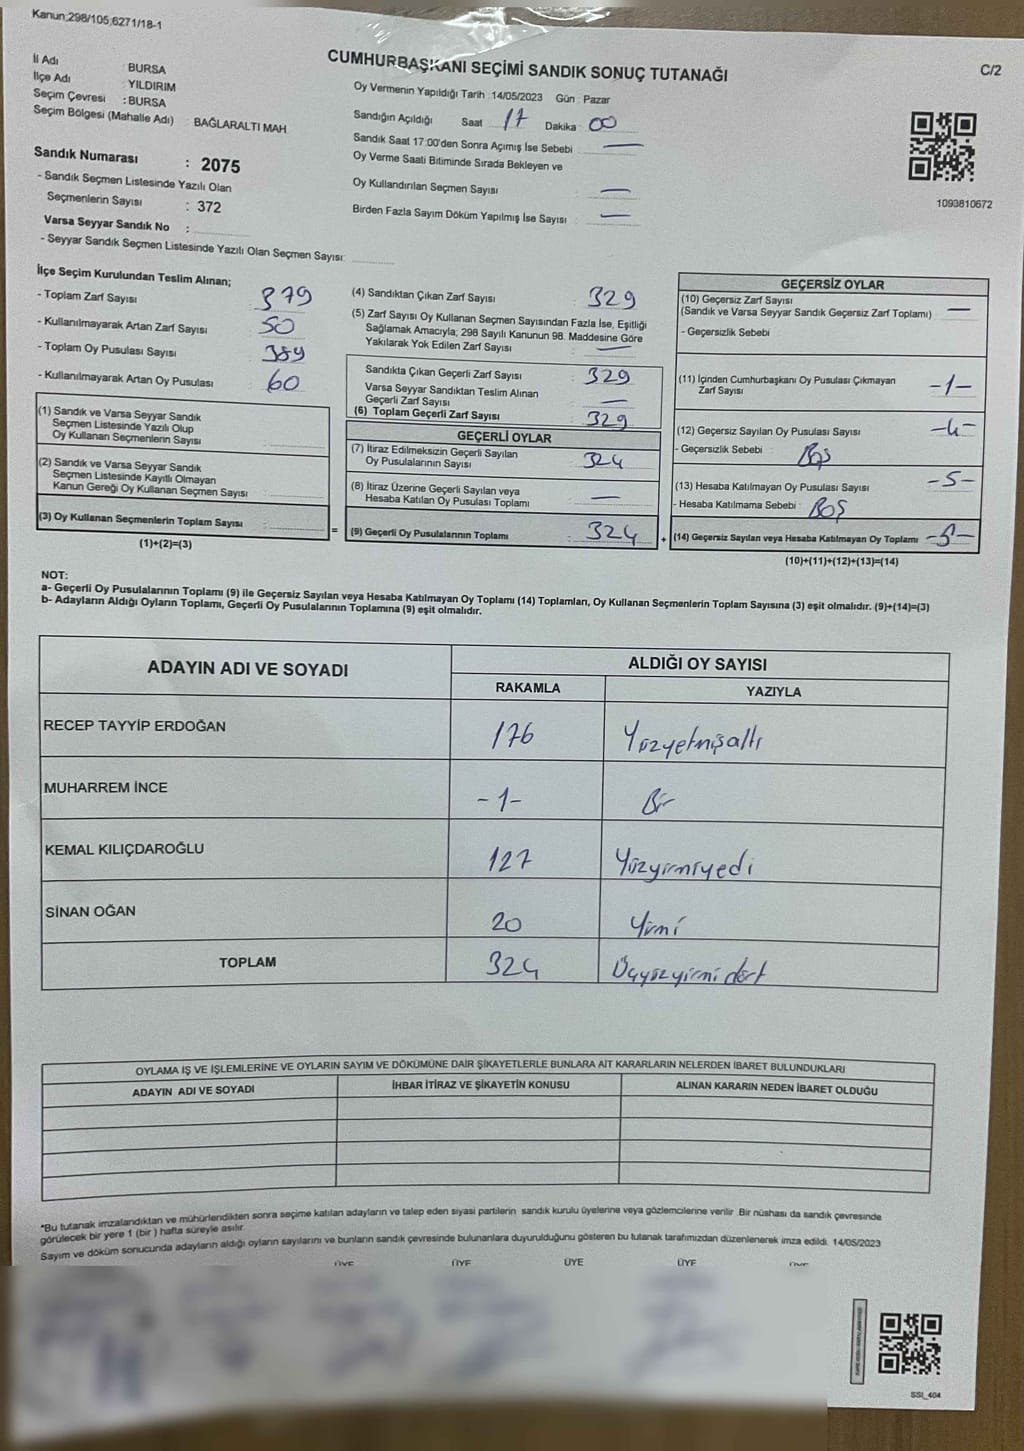 Kanun;298/105;6271/18-1
CUMHURBAŞKANI SEÇİMİ SANDIK SONUÇ TUTANAĞI
C/2
İl Adı : BURSA
İlçe Adı : YILDIRIM
Seçim Çevresi : BURSA
Seçim Bölgesi (Mahalle Adı) : BAĞLARALTI MAH
Sandık Numarası : 2075
- Sandık Seçmen Listesinde Yazılı Olan
Seçmenlerin Sayısı : 372
Varsa Seyyar Sandık No :
- Seyyar Sandık Seçmen Listesinde Yazılı Olan Seçmen Sayısı:
Oy Vermenin Yapıldığı Tarih :14/05/2023 Gün : Pazar
Sandığın Açıldığı Saat 17 Dakika 00
Sandık Saat 17:00'den Sonra Açımış İse Sebebi : —
Oy Verme Saati Bitiminde Sırada Bekleyen ve
Oy Kullandırılan Seçmen Sayısı : —
Birden Fazla Sayım Döküm Yapılmış İse Sayısı : —
1093810672
İlçe Seçim Kurulundan Teslim Alınan;
- Toplam Zarf Sayısı : 379
- Kullanılmayarak Artan Zarf Sayısı : 50
- Toplam Oy Pusulası Sayısı : 389
- Kullanılmayarak Artan Oy Pusulası : 60
(1) Sandık ve Varsa Seyyar Sandık
Seçmen Listesinde Yazılı Olup
Oy Kullanan Seçmenlerin Sayısı :
(2) Sandık ve Varsa Seyyar Sandık
Seçmen Listesinde Kayıtlı Olmayan
Kanun Gereği Oy Kullanan Seçmen Sayısı :
(3) Oy Kullanan Seçmenlerin Toplam Sayısı :
(1)+(2)=(3)
=
(4) Sandıktan Çıkan Zarf Sayısı : 329
(5) Zarf Sayısı Oy Kullanan Seçmen Sayısından Fazla İse, Eşitliği
Sağlamak Amacıyla; 298 Sayılı Kanunun 98. Maddesine Göre
Yakılarak Yok Edilen Zarf Sayısı : —
Sandıkta Çıkan Geçerli Zarf Sayısı : 329
Varsa Seyyar Sandıktan Teslim Alınan
Geçerli Zarf Sayısı : —
(6) Toplam Geçerli Zarf Sayısı : 329
GEÇERLİ OYLAR
(7) İtiraz Edilmeksizin Geçerli Sayılan
Oy Pusulalarının Sayısı : 324
(8) İtiraz Üzerine Geçerli Sayılan veya
Hesaba Katılan Oy Pusulası Toplamı : —
(9) Geçerli Oy Pusulalarının Toplamı : 324
+
GEÇERSİZ OYLAR
(10) Geçersiz Zarf Sayısı
(Sandık ve Varsa Seyyar Sandık Geçersiz Zarf Toplamı) : —
- Geçersizlik Sebebi :
(11) İçinden Cumhurbaşkanı Oy Pusulası Çıkmayan
Zarf Sayısı : -1-
(12) Geçersiz Sayılan Oy Pusulası Sayısı : -4-
- Geçersizlik Sebebi : Boş
(13) Hesaba Katılmayan Oy Pusulası Sayısı : -5-
- Hesaba Katılmama Sebebi : Boş
(14) Geçersiz Sayılan veya Hesaba Katılmayan Oy Toplamı : -5-
(10)+(11)+(12)+(13)=(14)
NOT:
a- Geçerli Oy Pusulalarının Toplamı (9) ile Geçersiz Sayılan veya Hesaba Katılmayan Oy Toplamı (14) Toplamları, Oy Kullanan Seçmenlerin Toplam Sayısına (3) eşit olmalıdır. (9)+(14)=(3)
b- Adayların Aldığı Oyların Toplamı, Geçerli Oy Pusulalarının Toplamına (9) eşit olmalıdır.
ADAYIN ADI VE SOYADI ALDIĞI OY SAYISI
RAKAMLA YAZIYLA
RECEP TAYYİP ERDOĞAN 176 Yüzyetmişaltı
MUHARREM İNCE -1- Bir
KEMAL KILIÇDAROĞLU 127 Yüzyirmiyedi
SİNAN OĞAN 20 Yirmi
TOPLAM 324 Üçyüzyirmi dört
OYLAMA İŞ VE İŞLEMLERİNE VE OYLARIN SAYIM VE DÖKÜMÜNE DAİR ŞİKAYETLERLE BUNLARA AİT KARARLARIN NELERDEN İBARET BULUNDUKLARI
ADAYIN ADI VE SOYADI İHBAR İTİRAZ VE ŞİKAYETİN KONUSU ALINAN KARARIN NEDEN İBARET OLDUĞU
*Bu tutanak imzalandıktan ve mühürlendikten sonra seçime katılan adayların ve talep eden siyasi partilerin sandık kurulu üyelerine veya gözlemcilerine verilir. Bir nüshası da sandık çevresinde
görülecek bir yere 1 (bir ) hafta süreyle asılır.
Sayım ve döküm sonucunda adayların aldığı oyların sayılarını ve bunların sandık çevresinde bulunanlara duyurulduğunu gösteren bu tutanak tarafımızdan düzenlenerek imza edildi. 14/05/2023
ÜYE ÜYE ÜYE ÜYE ÜYE
SSI_404